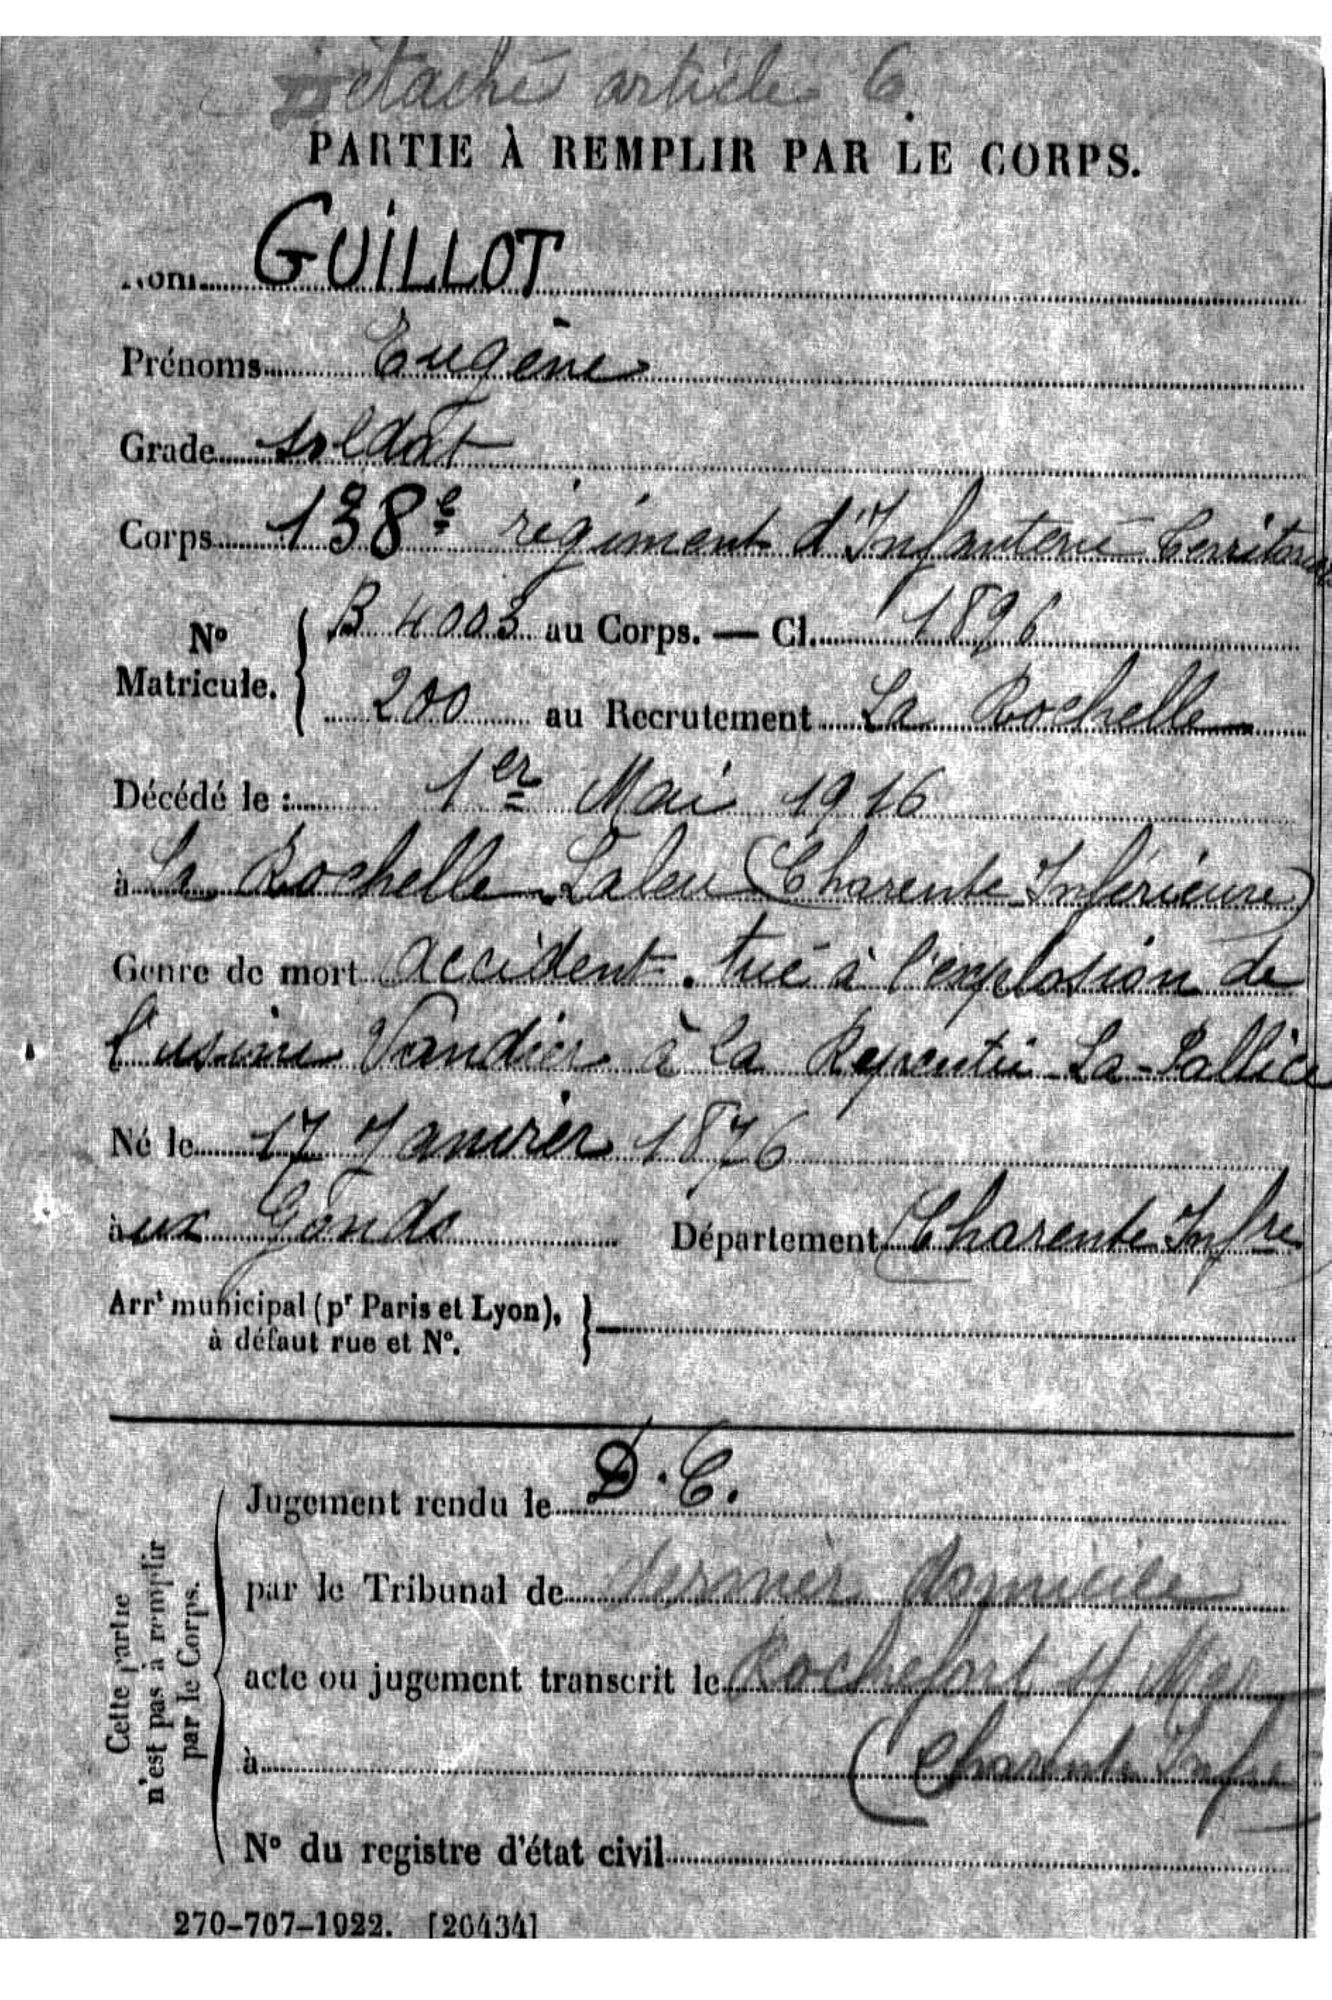 Détaché article 6.
PARTIE À REMPLIR PAR LE CORPS.
Nom GUILLOT
Prénoms Eugène
Grade soldat
Corps 138e régiment d'Infanterie Territoriale
No Matricule. { B 4003 au Corps. — Cl. 1896
200 au Recrutement La Rochelle
Décédé le : 1er Mai 1916
à La Rochelle-Laleu (Charente Inférieure)
Genre de mort accident. tué à l'explosion de
l'usine Vandier à la Repentie La-Pallice
Né le 17 Janvier 1876
aux Gonds Département Charente Infre
Arrt municipal (pr Paris et Lyon), }
à défaut rue et No.
Cette partie
n'est pas à remplir
par le Corps.
Jugement rendu le D. C.
par le Tribunal de dernier domicile
acte ou jugement transcrit le Rochefort s/ Mer
à (Charente Infre
No du registre d'état civil
270-707-1922. [26434]